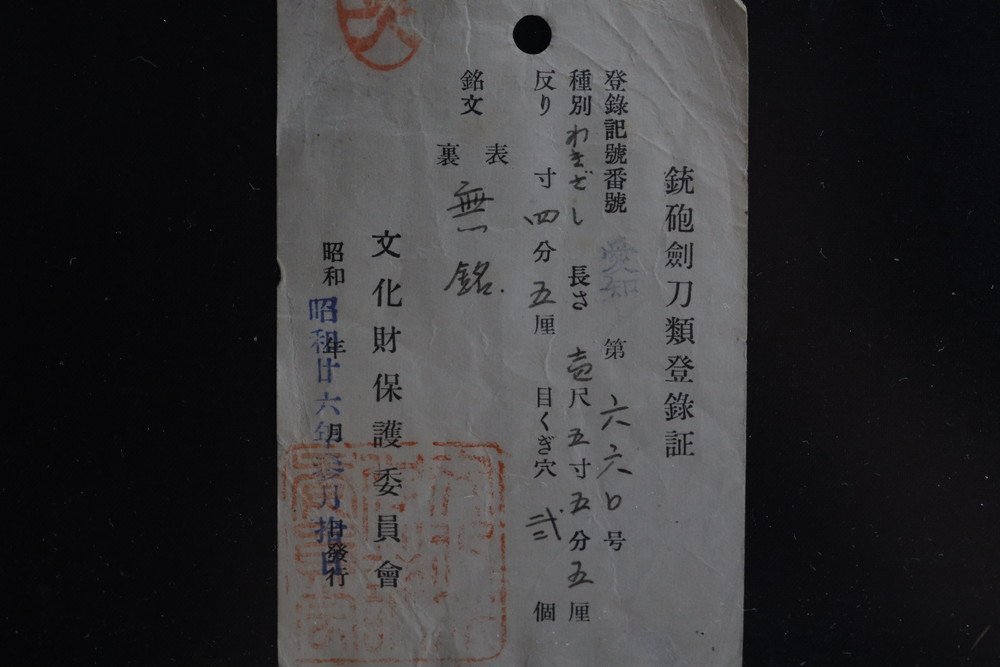 銃砲劍刀類登錄証
登錄記號番號 愛知 第 六六〇号
種別 わきざし 長さ 壱尺五寸五分五厘
反り 寸四分五厘 目くぎ穴 弍 個
銘文 表 無銘
裏
文化財保護委員會
昭和 年 月 日發行
昭和廿六年 月拾 日